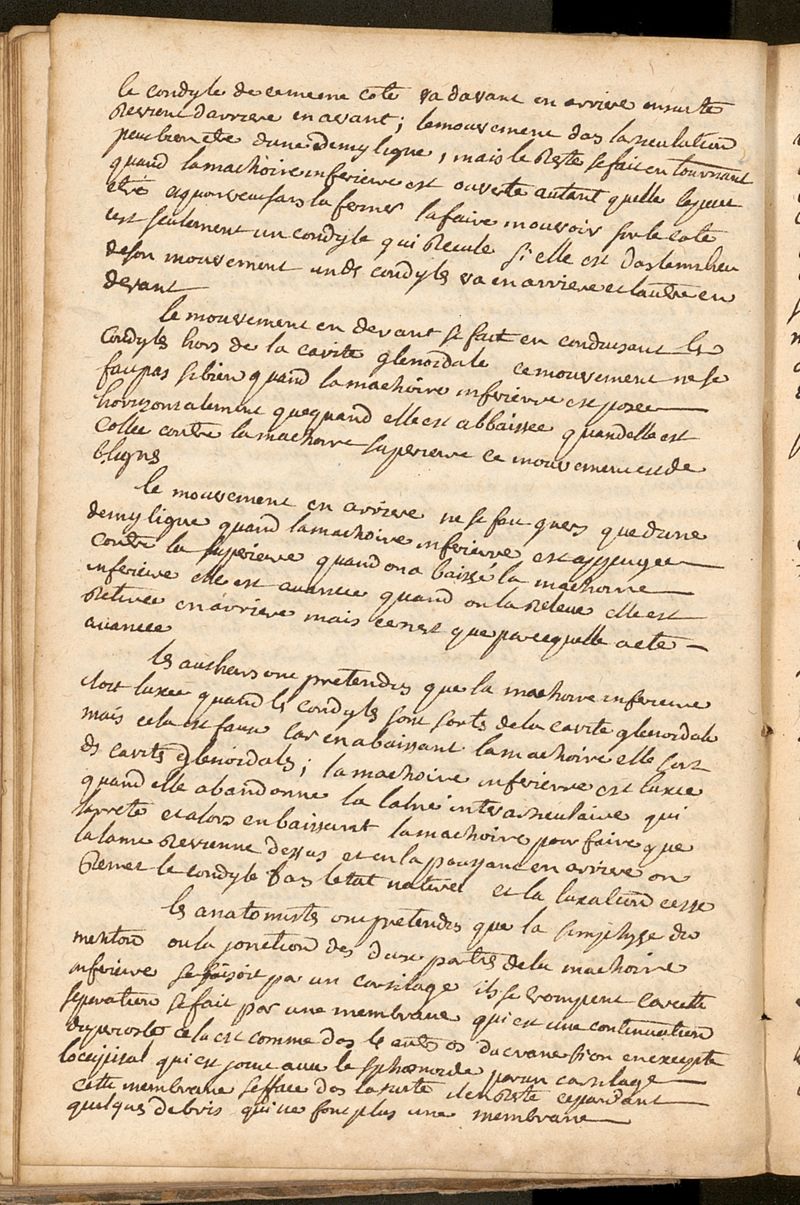 le condyle de ce meme cote va davant en arriere ensuite
Revient darriere en avant; le mouvement das larticulation
peut bien etre dune demy ligne, mais le Reste se fait en tournant
quand la machoire inferieure est ouverte autant quelle le peut
etre et quon veut sans la fermer la faire mouvoir sur le cote
cest seulement un condyle qui Recule si elle est das le milieu
de son mouvement un ds condyls va en arriere et lautre en
devant
le mouvement en devant se fait en conduisant ls
Condyls hors de la cavite glenoidale ce mouvement ne se
fait pas si bien quand la machoire inferieure est posee
horizontalement que quand elle est abbaissee quand elle est
Collee contre la machoire superieure ce mouvement est de
2 ligns
le mouvement en arriere ne se fait guers que dune
demy ligne quand la machoire inferieure est appuyee
contre la superieure quand on a baissé la machoire
inferieure elle est avancee quand on la Releve elle est
Retiree en arriere mais ce nest que parcequelle a ete
avancee
ls autheurs ont pretendus que la machoire inferieure
etoit luxee quand ls condyls sont sortis de la cavite glenoidale
mais cela est faux car en abaissant la machoire elle sort
ds cavits glenoidals; la machoire inferieure est luxee
quand elle abandonne la lame interarticulaire qui
larrete et alors en baissant la machoire pour faire que
la lame Revienne dessus et en la poussant en arriere on
Remet le condyle das letat naturel et la luxation cesse
ls anatomists ont pretendus que la simphyse du
menton ou la jonction des deux partis de la machoire
inferieure se faisoit par un cartilage ils se trompent car cette
separation se fait par une membrane qui est une continuation
du perioste cela est comme das ls auts os du crane si on en excepte
loccipital qui est joint avec le sphenoide par un cartilage
cette membrane sefface das la suite il en Reste cependant
quelques debris qui ne font plus une membrane